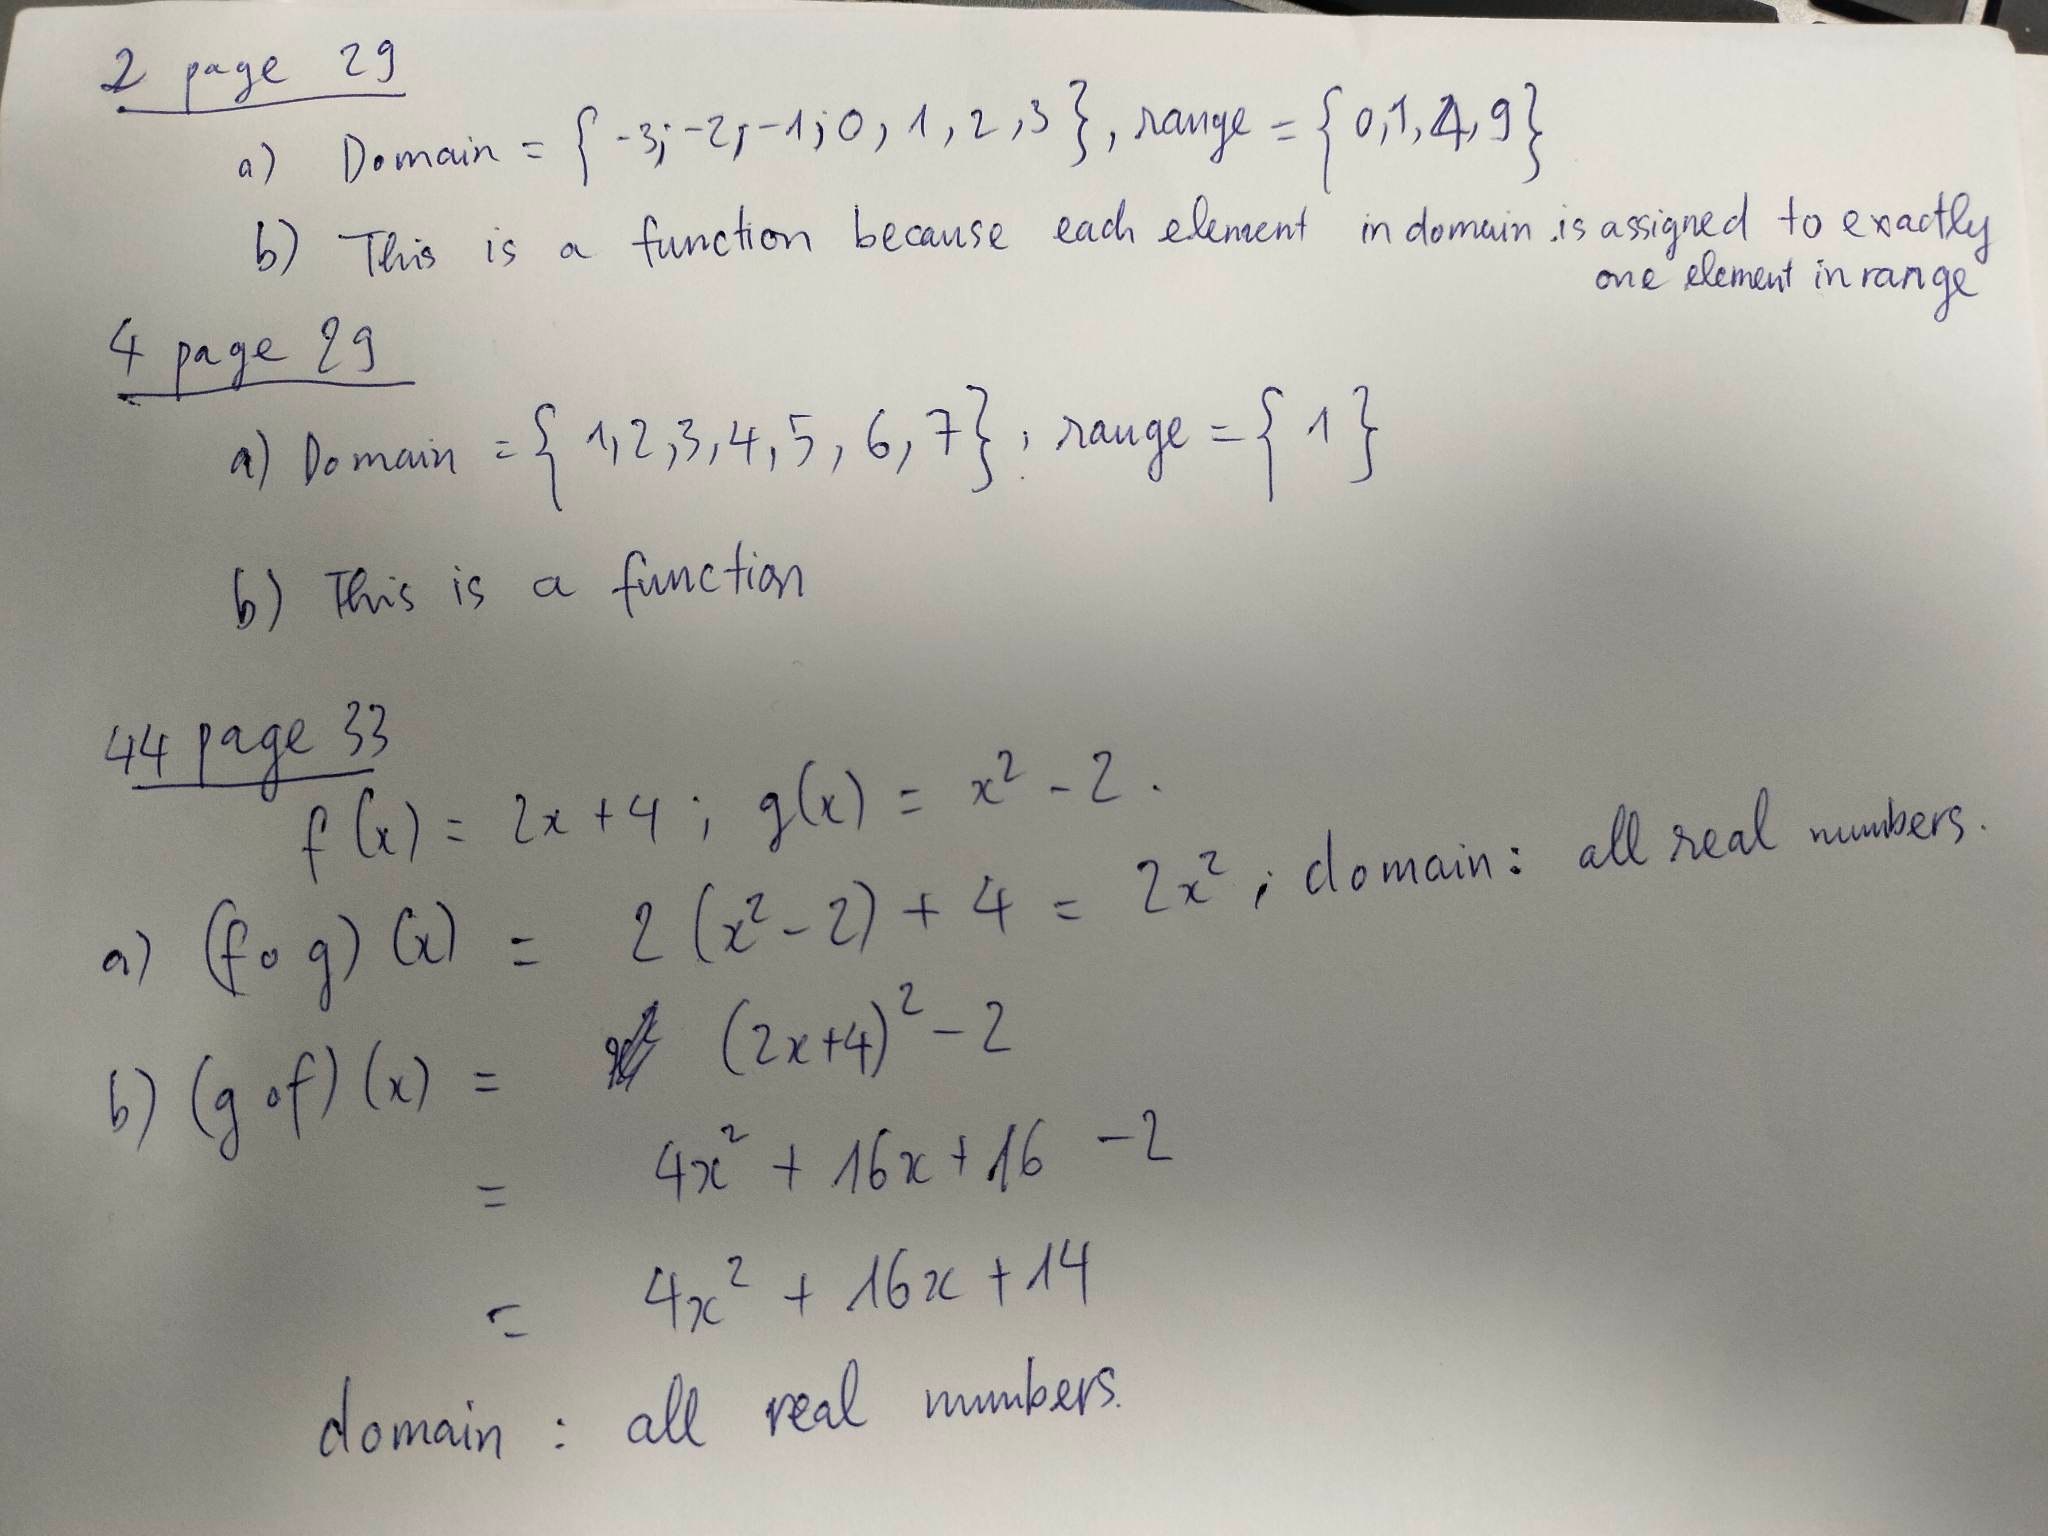 2 page 29
a) Domain = { -3; -2; -1; 0, 1, 2, 3 }, range = { 0, 1, 4, 9 }
b) This is a function because each element in domain is assigned to exactly
one element in range
4 page 29
a) Domain = { 1, 2, 3, 4, 5, 6, 7 }; range = { 1 }
b) This is a function
44 page 33
f(x) = 2x + 4; g(x) = x² - 2.
a) (f∘g)(x) = 2(x² - 2) + 4 = 2x²; domain: all real numbers.
b) (g∘f)(x) = (2x+4)² - 2
= 4x² + 16x + 16 - 2
= 4x² + 16x + 14
domain: all real numbers.